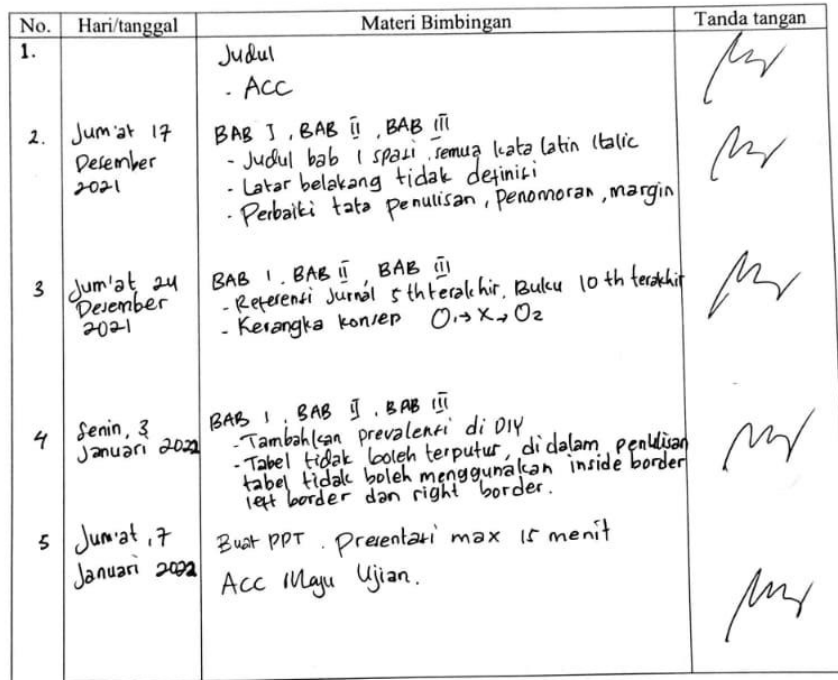 No. Hari/tanggal Materi Bimbingan Tanda tangan
1. Judul
- ACC
2. Jum'at 17 Desember 2021
BAB I, BAB II, BAB III
- Judul bab 1 spasi, semua kata latin Italic
- Latar belakang tidak definisi
- Perbaiki tata penulisan, penomoran, margin
3 Jum'at 24 Desember 2021
BAB I, BAB II, BAB III
- Referensi Jurnal 5 th terakhir, Buku 10 th terakhir
- Kerangka konsep O1 → X → O2
4 Senin, 3 Januari 2022
BAB I, BAB II, BAB III
- Tambahkan prevalensi di DIY
- Tabel tidak boleh terputus, di dalam penulisan
tabel tidak boleh menggunakan inside border
left border dan right border.
5 Jum'at, 7 Januari 2022
Buat PPT. Presentasi max 15 menit
ACC Maju Ujian.